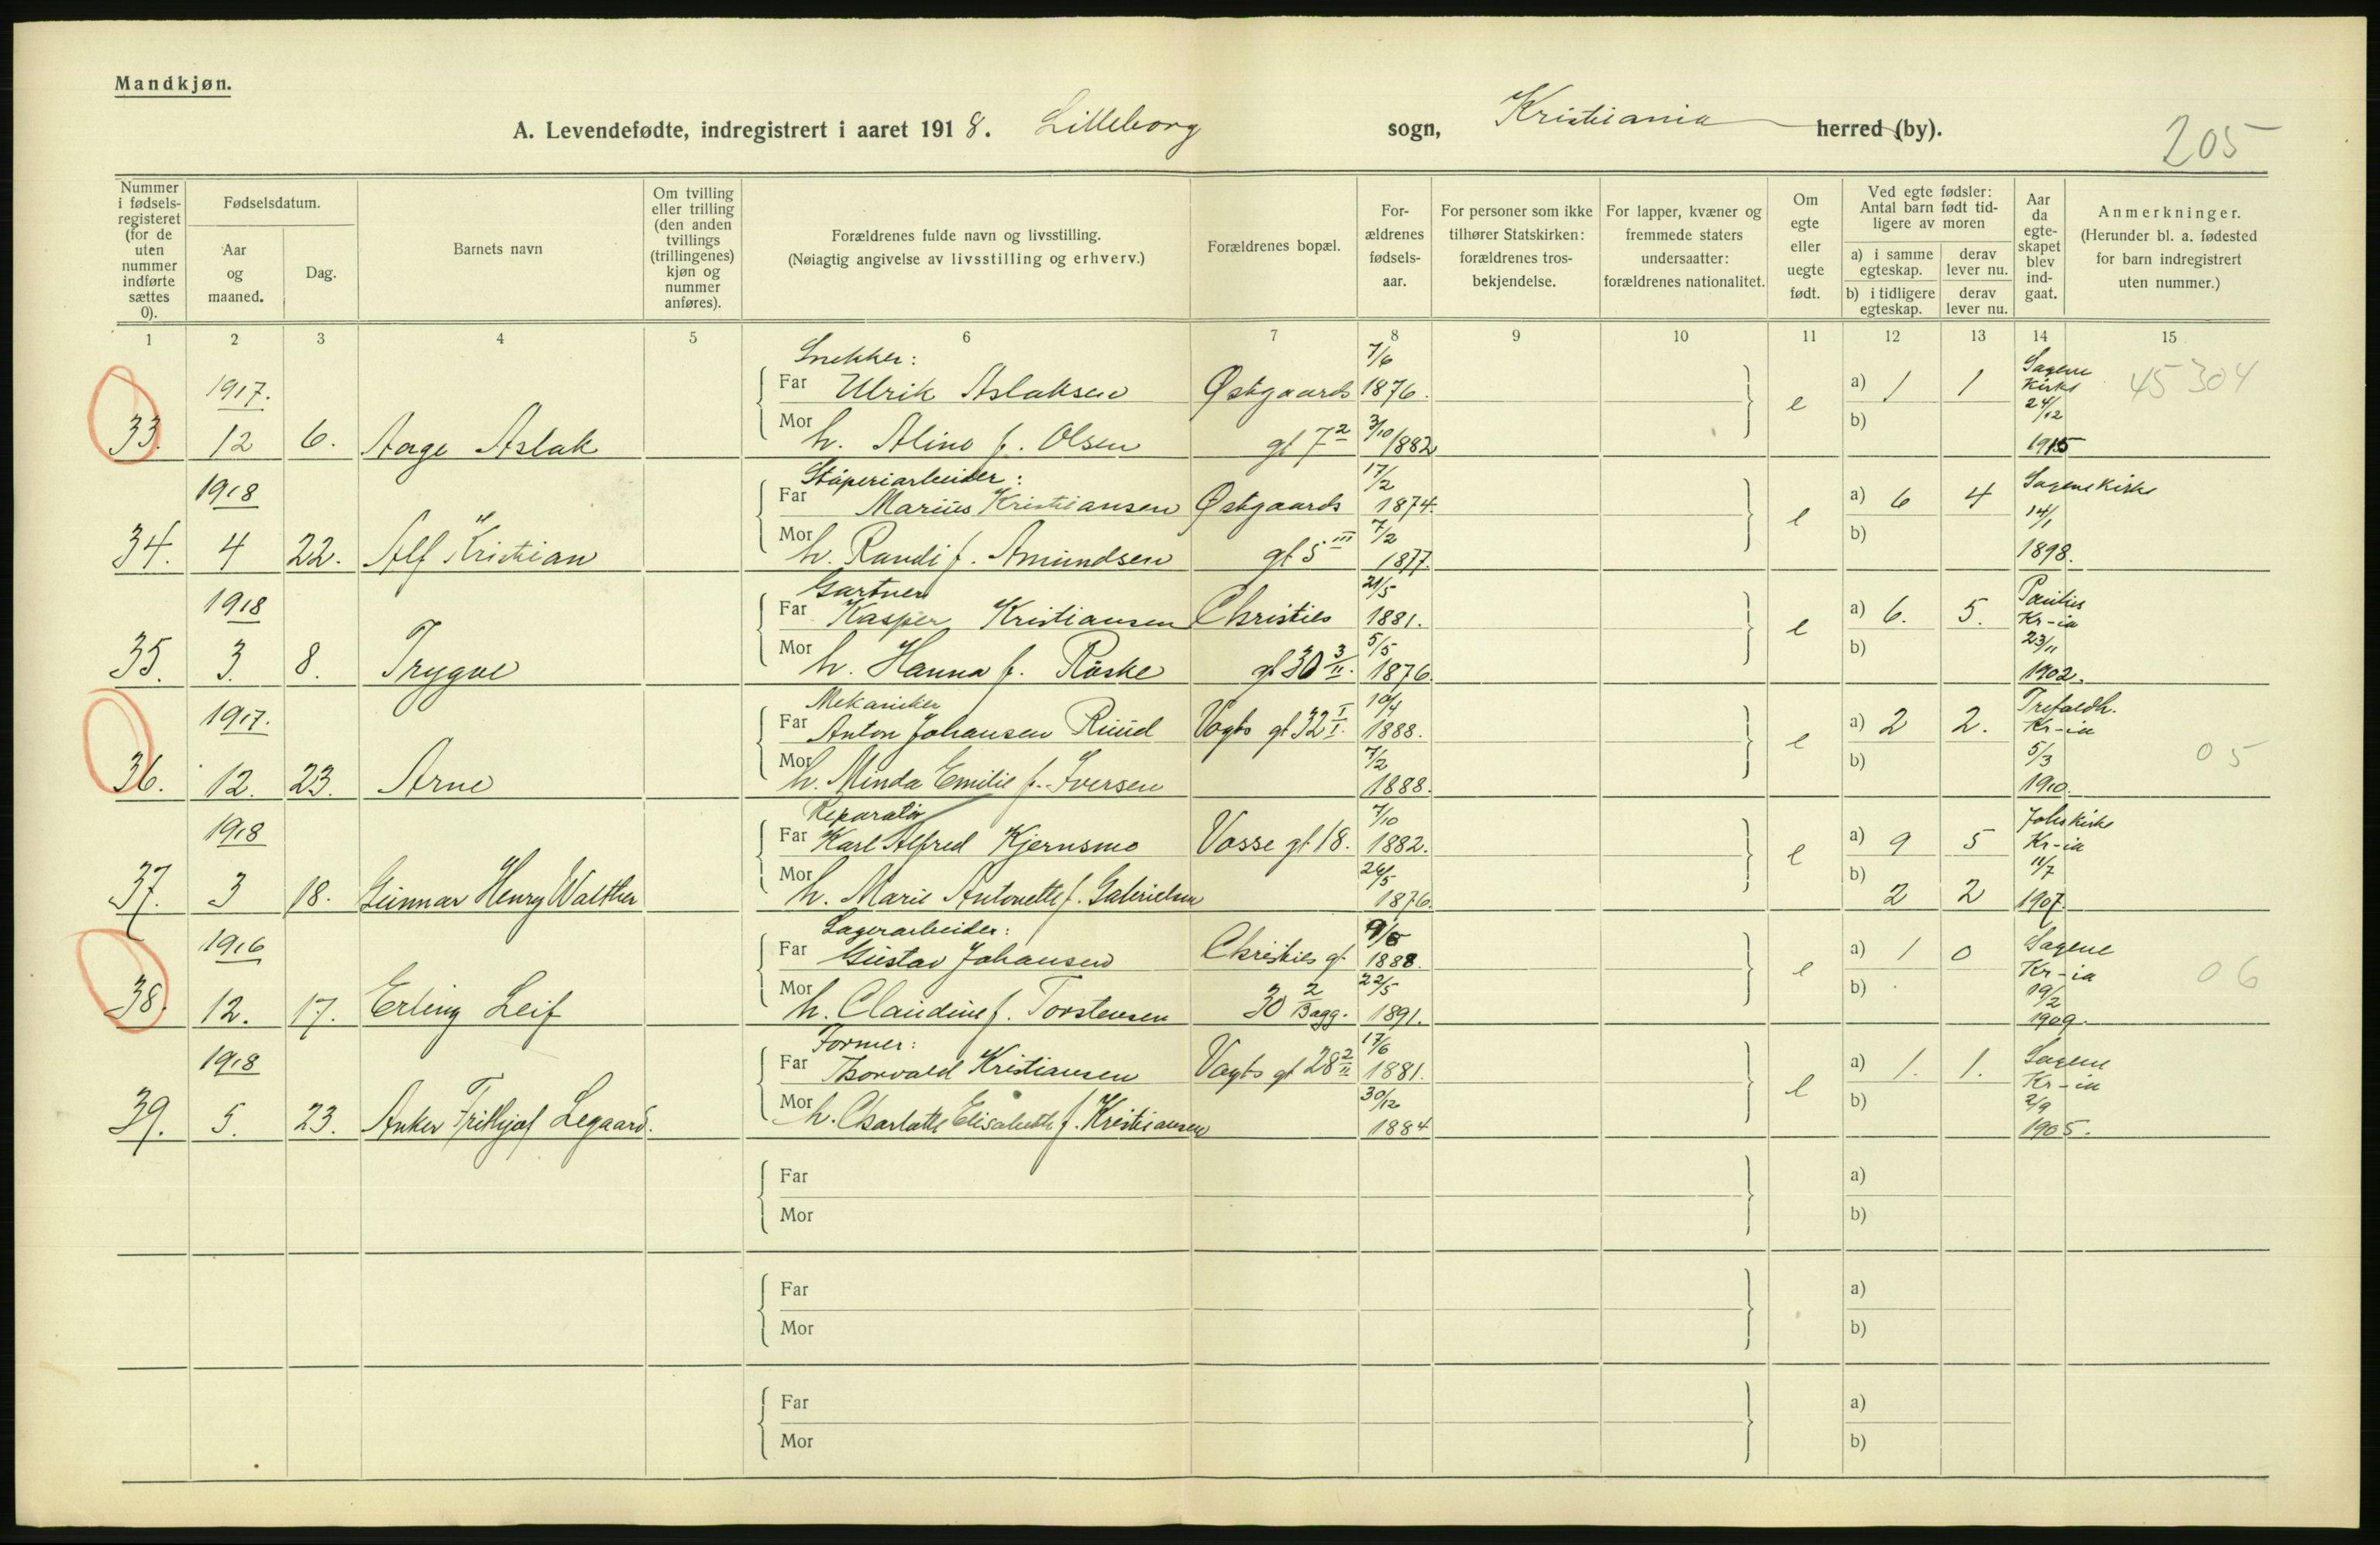 Mandkjøn.
A. Levendefødte, indregistrert i aaret 1918. Lilleborg sogn, Kristiania herred (by).
205
Nummer i fødsels-registeret (for de uten nummer indførte sættes 0).
Fødselsdatum.
Aar og maaned.
Dag.
Barnets navn
Om tvilling eller trilling (den anden tvillings (trillingenes) kjøn og nummer anføres).
Forældrenes fulde navn og livsstilling.
(Nøiagtig angivelse av livsstilling og erhverv.)
Forældrenes bopæl.
For-ældrenes fødsels-aar.
For personer som ikke tilhører Statskirken: forældrenes tros-bekjendelse.
For lapper, kvæner og fremmede staters undersaatter: forældrenes nationalitet.
Om egte eller uegte født.
Ved egte fødsler: Antal barn født tid-ligere av moren
a) i samme egteskap.
derav lever nu.
b) i tidligere egteskap.
derav lever nu.
Aar da egte-skapet blev ind-gaat.
Anmerkninger.
(Herunder bl. a. fødested for barn indregistrert uten nummer.)
1 2 3 4 5 6 7 8 9 10 11 12 13 14 15
Snekker: 7/6 Sagene
1917. Far Ulrik Aslaksen Østgaards 1876. e a) 1 1 Kirke 45304
24/12
33. 12 6. Aage Aslak Mor h. Aline f. Olsen gt 7 2 3/10 1882 b) 1915
Støperiarbeider: 17/2
1918 Far Marius Kristiansen Østgaards 1874. e a) 6 4 Sagene Kirke
14/1
34. 4 22. Alf Kristian Mor h. Randi f. Amundsen gt 5 III 7/2 1877. b) 1898.
Gartner 21/5 Paulus
1918 Far Kasper Kristiansen Christies 1881. e a) 6. 5. Kr-ia
23/11
35. 3. 8. Trygve Mor h. Hanna f. Røske gt 30 3/II. 5/5 1876. b) 1902.
Mekaniker 10/4
1917. Far Anton Johansen Ruud Vogts gt 32 I/I. 1888. e a) 2 2. Kr-ia
5/3 05
36. 12. 23. Arne Mor h. Minda Emilie f. Iversen 7/2 1888. b) 1910.
Reparatør 7/10 Johs kirke
1918 Far Karl Alfred Kjernsmo Vosse gt 18. 1882. e a) 9 5 Kr-ia
11/7
37. 3 18. Gunnar Henry Walther Mor h. Marie Antonette f. Gabrielsen 26/5 1876. b) 2 2 1907.
Lagerarbeider: Sagene
1916 Far Gustav Johansen Christies gt 1888. e a) 1 0 Kr-ia
19/2 06
38. 12. 17. Erling Leif Mor h. Claudine f. Torstensen 30 2/Bagg. 22/5 1891. b) 1909.
Former: 17/6 Sagene
1918 Far Thorvald Kristiansen Vogts gt 28 2/II 1881. e a) 1. 1. Kr-ia
2/9
39. 5. 23. Anker Frithjof Legaard. Mor h. Charlotte Elisabeth f. Kristiansen 30/12 1884 b) 1905.
Far a)
Mor b)
Far a)
Mor b)
Far a)
Mor b)